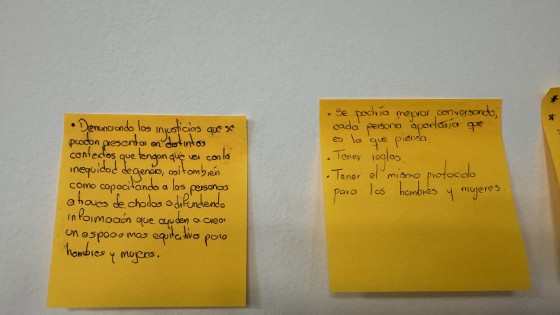 • Denunciando las injusticias que se
puedan presentar en distintos
contextos que tengan que ver con la
inequidad de genero, asi tambien
como capacitando a las personas
a traves de charlas o difundiendo
información que ayuden a crear
un espacio mas equitativo para
hombres y mujeres.
• Se podría mejorar conversando,
cada persona aportaría que
es lo que piensa.
• Tener reglas
• Tener el mismo protocolo
para los hombres y mujeres.